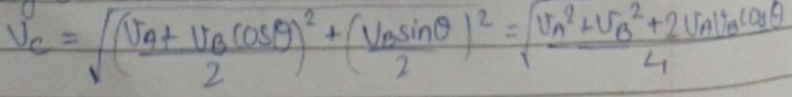 V_C = √((V_A + V_B cosθ)/2)² + ((V_B sinθ)/2)² = √(V_A² + V_B² + 2V_A V_B cosθ)/4